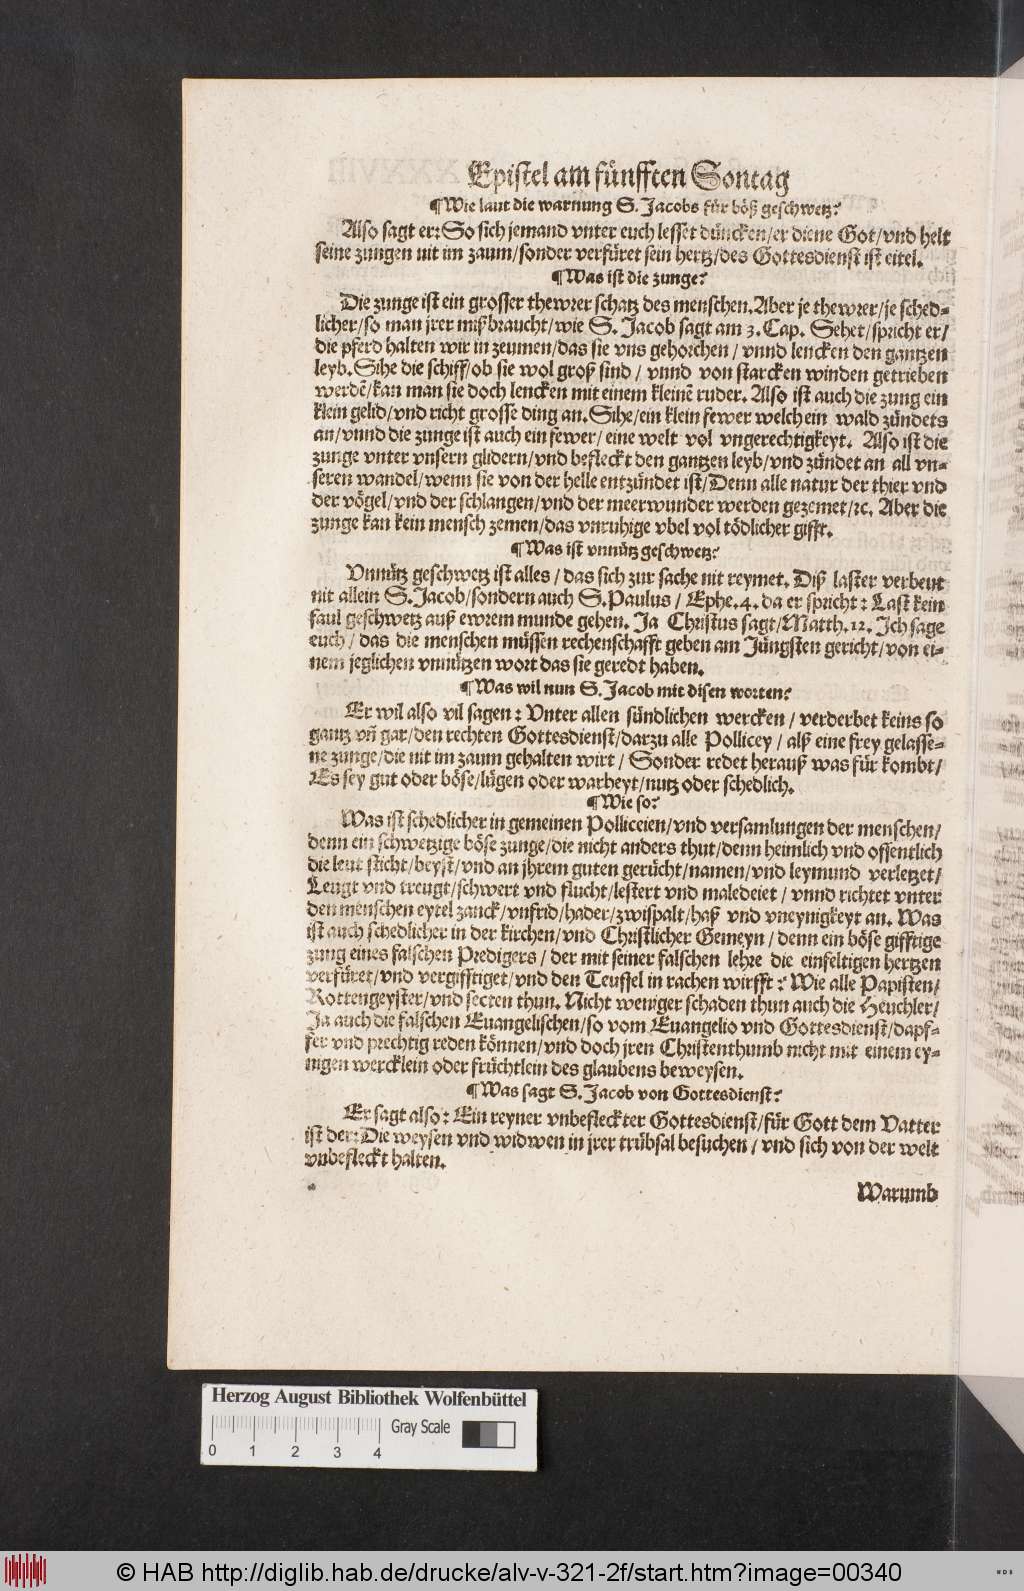 Epistel am fünfften Sontag
¶Wie laut die warnung S. Jacobs für böß geschwetz?
Also sagt er: So sich jemand vnter euch lesset düncken/er diene Got/vnd helt
seine zungen nit im zaum/sonder verfüret sein hertz/des Gottesdienst ist eitel.
¶Was ist die zunge?
Die zunge ist ein grosser thewrer schatz des menschen.Aber je thewrer/je sched-
licher/so man jrer mißbraucht/wie S. Jacob sagt am 3.Cap. Sehet/spricht er/
die pferd halten wir in zeumen/das sie vns gehorchen / vnnd lencken den gantzen
leyb.Sihe die schiff/ob sie wol groß sind / vnnd von starcken winden getrieben
werdē/kan man sie doch lencken mit einem kleinē ruder. Also ist auch die zung ein
klein gelid/vnd richt grosse ding an.Sihe/ein klein fewer welch ein wald zündets
an/vnnd die zunge ist auch ein fewer/ eine welt vol vngerechtigkeyt. Also ist die
zunge vnter vnsern glidern/vnd befleckt den gantzen leyb/vnd zündet an all vn-
seren wandel/wenn sie von der helle entzündet ist/Denn alle natur der thier vnd
der vögel/vnd der schlangen/vnd der meerwunder werden gezemet/ꝛc. Aber die
zunge kan kein mensch zemen/das vnruhige vbel vol tödlicher gifft.
¶Was ist vnnütz geschwetz?
Vnnütz geschwetz ist alles / das sich zur sache nit reymet. Diß laster verbeut
nit allein S.Jacob/sondern auch S.Paulus / Ephe.4. da er spricht: Last kein
faul geschwetz auß ewrem munde gehen. Ja Christus sagt/Matth.12. Ich sage
euch / das die menschen müssen rechenschafft geben am Jüngsten gericht/von ei-
nem jeglichen vnnützen wort das sie geredt haben.
¶Was wil nun S. Jacob mit disen worten?
Er wil also vil sagen: Vnter allen sündlichen wercken / verderbet keins so
gantz vñ gar/den rechten Gottesdienst/darzu alle Pollicey / alß eine frey gelasse-
ne zunge/die nit im zaum gehalten wirt / Sonder redet herauß was für kombt/
Es sey gut oder böse/lügen oder warheyt/nutz oder schedlich.
¶Wie so?
Was ist schedlicher in gemeinen Polliceien/vnd versamlungen der menschen/
denn ein schwetzige böse zunge/die nicht anders thut/denn heimlich vnd offentlich
die leut sticht/beyst/vnd an jhrem guten gerücht/namen/vnd leymund verletzet/
Leugt vnd treugt/schwert vnd flucht/lestert vnd maledeiet / vnnd richtet vnter
den menschen eytel zanck/vnfrid/hader/zwispalt/haß vnd vneynigkeyt an. Was
ist auch schedlicher in der kirchen/vnd Christlicher Gemeyn / denn ein böse gifftige
zung eines falschen Predigers / der mit seiner falschen lehre die einfeltigen hertzen
verfüret/vnd vergifftiget/vnd den Teuffel in rachen wirfft: Wie alle Papisten/
Rottengeyster/vnd secten thun. Nicht weniger schaden thun auch die Heuchler/
Ja auch die falschen Euangelischen/so vom Euangelio vnd Gottesdienst/dapf-
fer vnd prechtig reden können/vnd doch jren Christenthumb nicht mit einem ey-
nigen wercklein oder früchtlein des glaubens beweysen.
¶Was sagt S. Jacob von Gottesdienst?
Er sagt also: Ein reyner vnbefleckter Gottesdienst/für Gott dem Vatter
ist der: Die weysen vnd widwen in jrer trübsal besuchen / vnd sich von der welt
vnbefleckt halten.
Warumb
Herzog August Bibliothek Wolfenbüttel
Gray Scale
0 1 2 3 4
© HAB http://diglib.hab.de/drucke/alv-v-321-2f/start.htm?image=00340